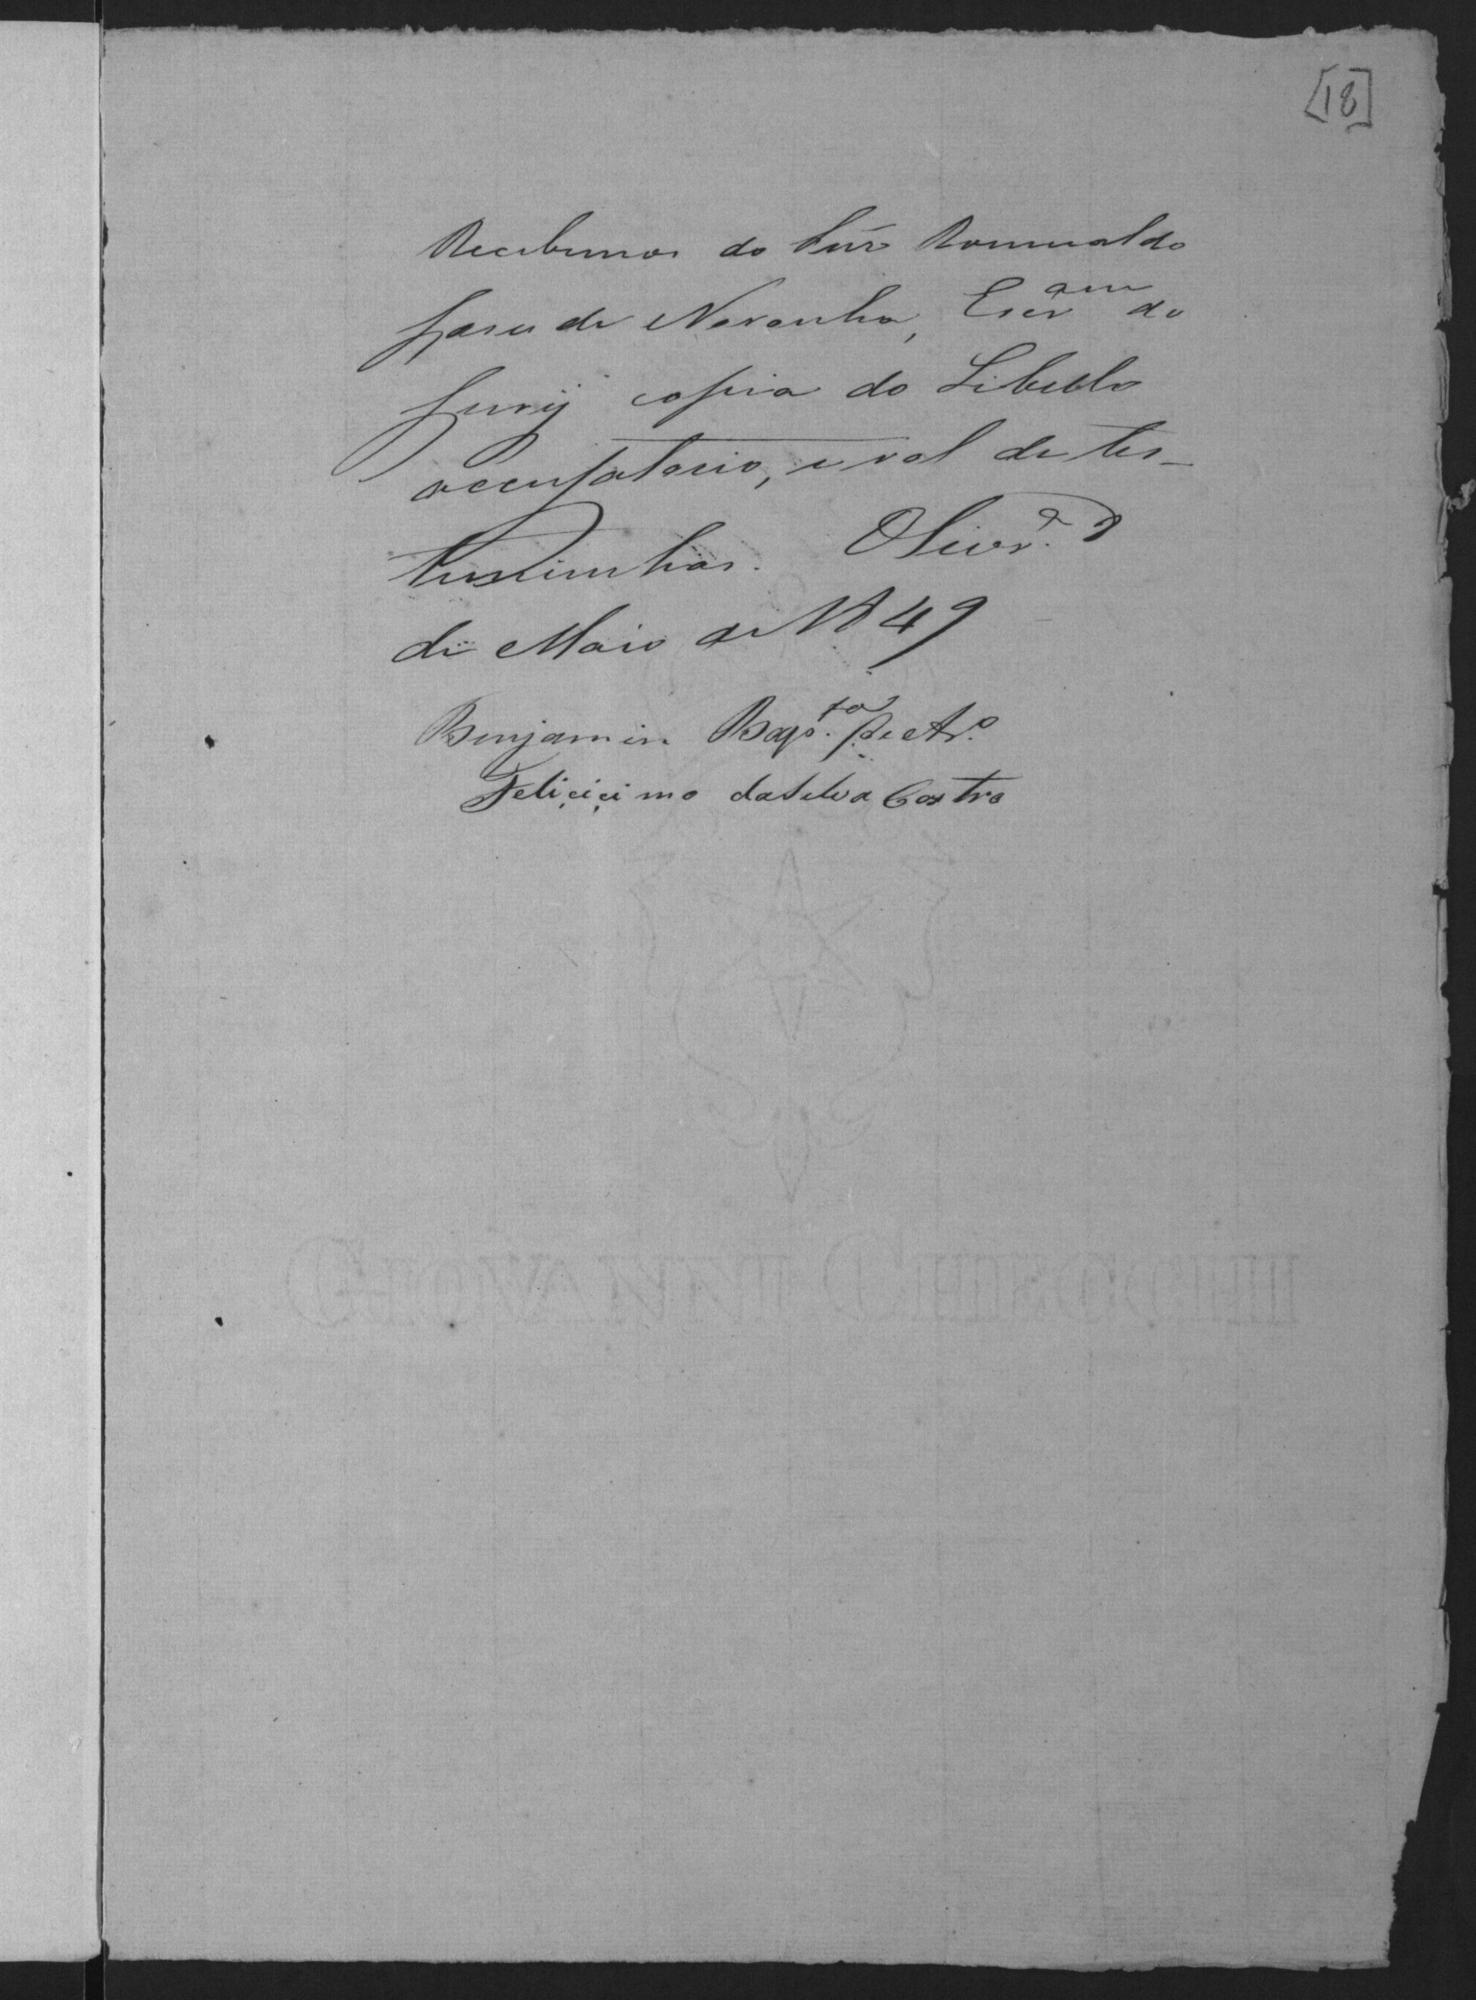 [18]
Recebemos do Snr Romualdo
José de Noronha, Escr.am do
Jury copia do Libello
accusatorio, e rol de tes-
temunhas. Olivr.a 9
de Maio de 1849
Benjamin Bap.ta
Feliçiçimo da Silva Castro
GIOVANNI